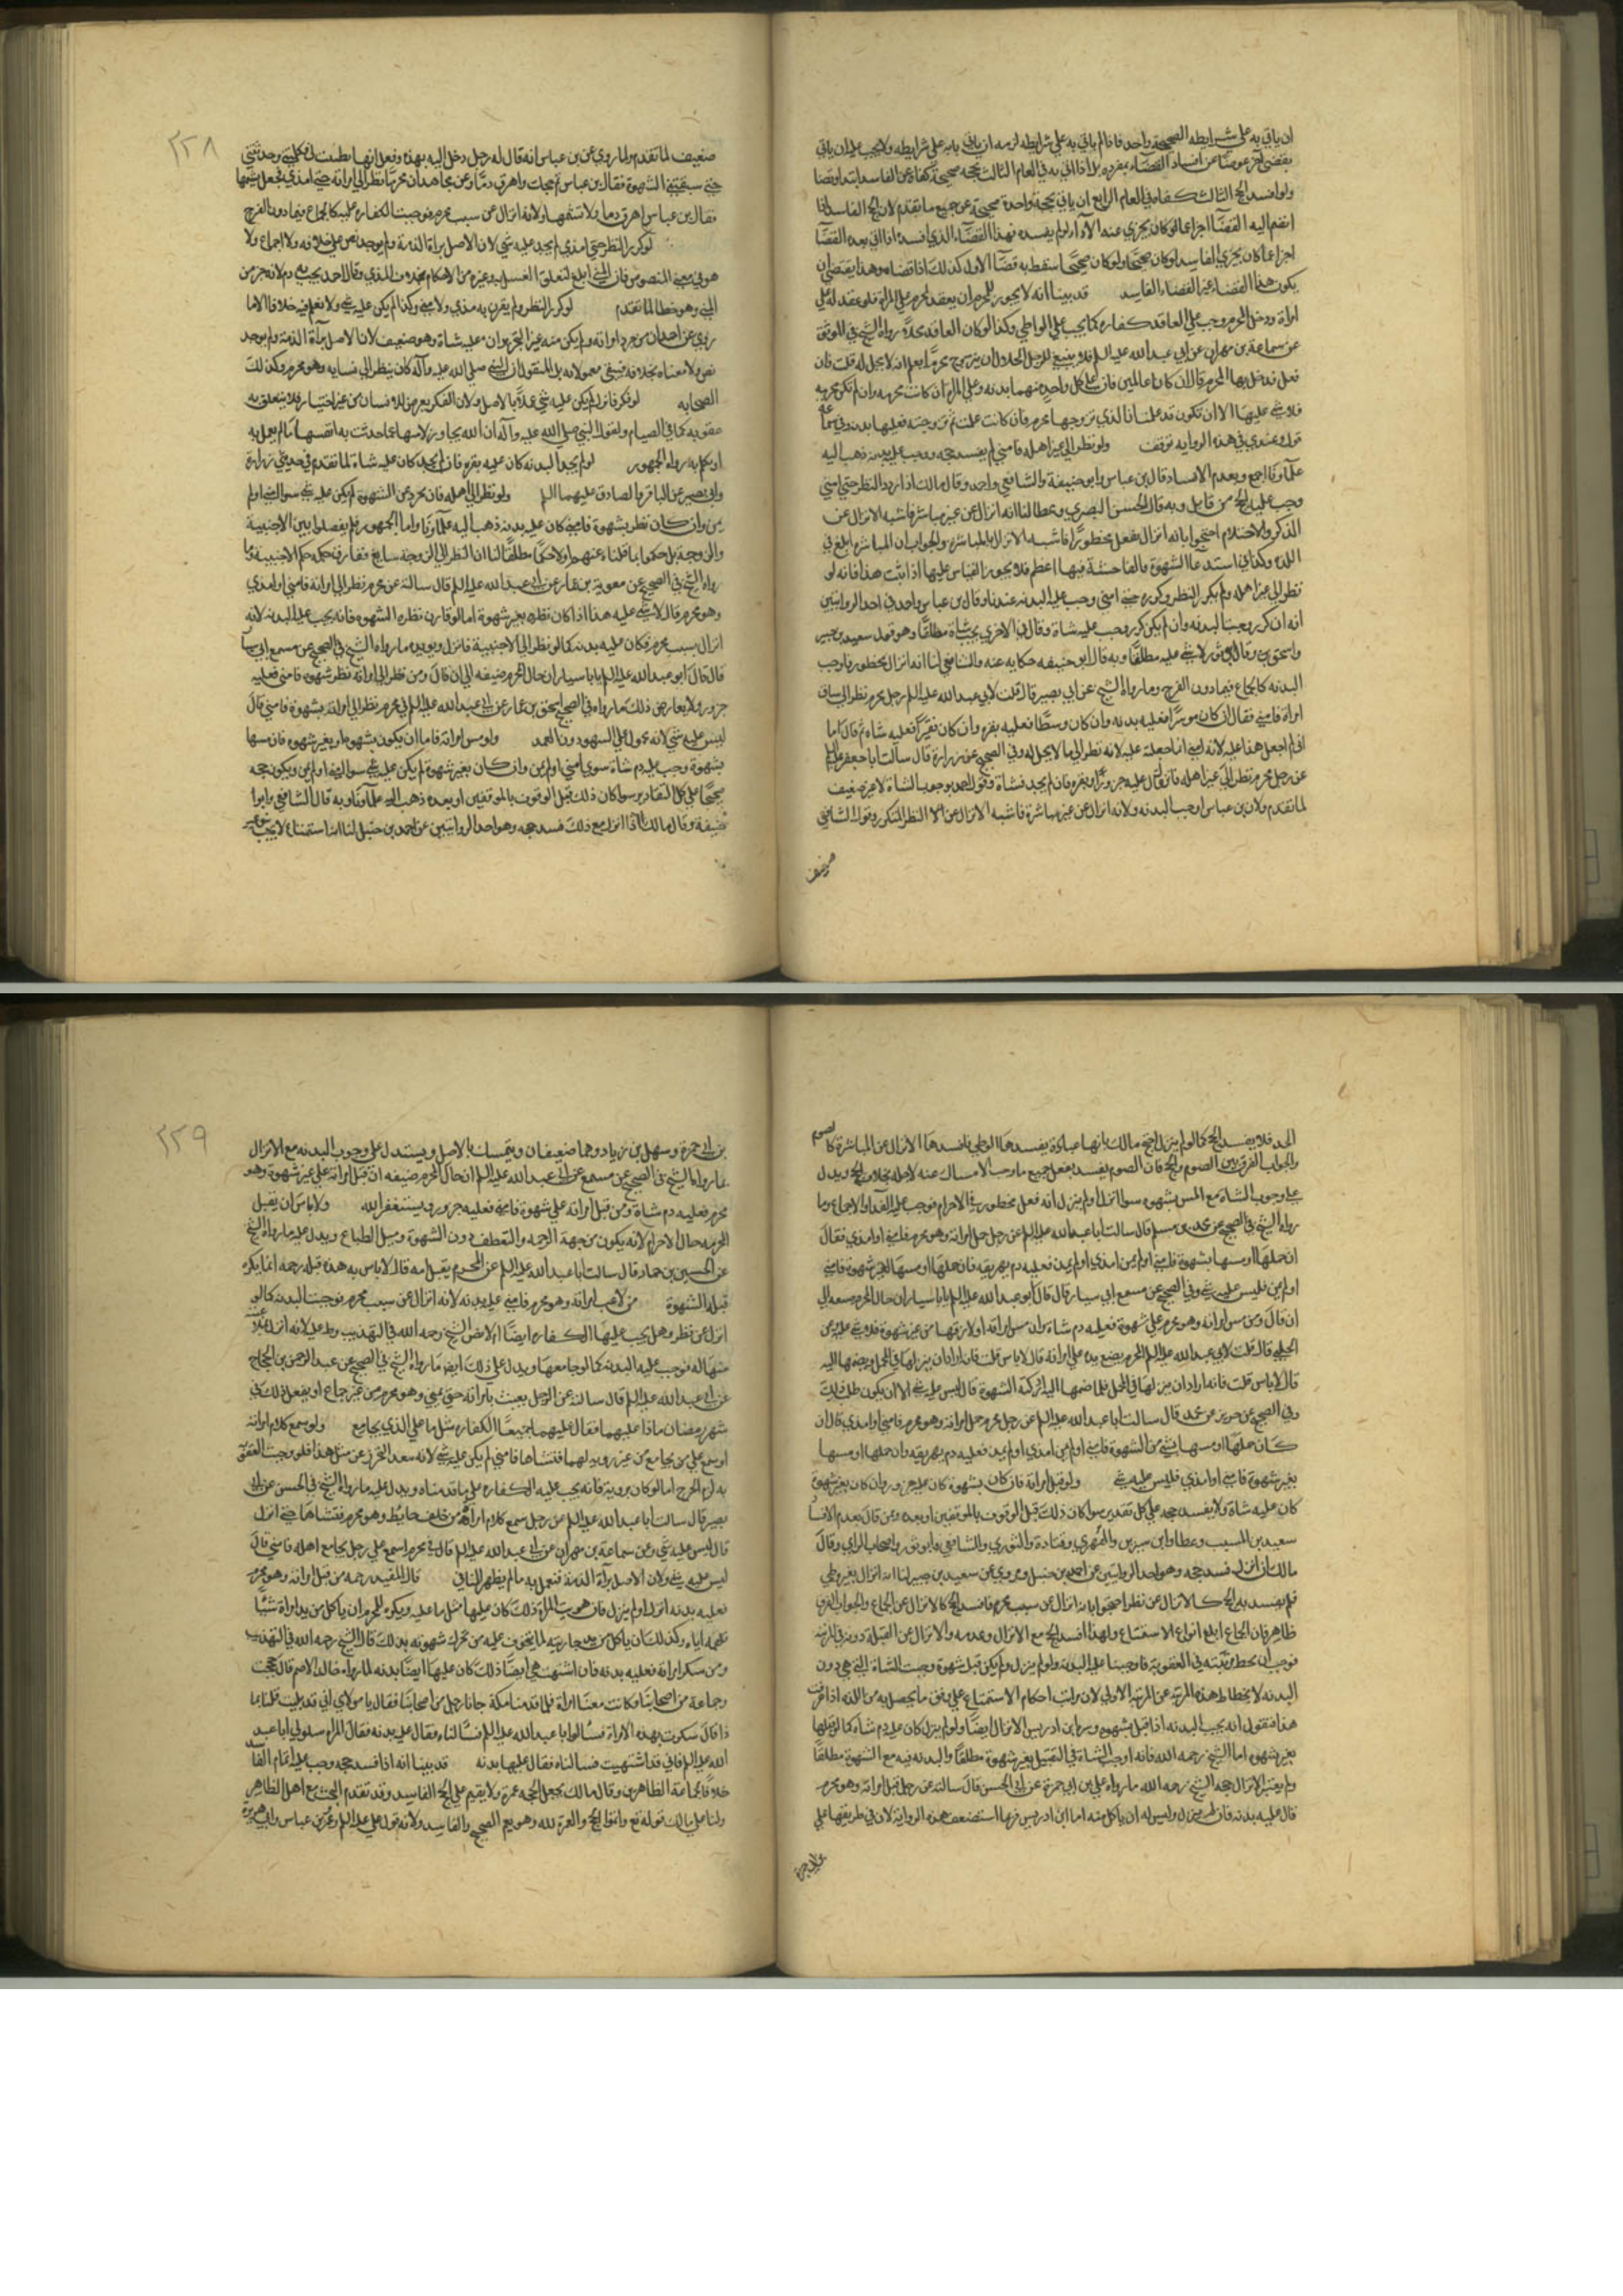 ان ياتي به على شرايطه الصحيحة واحد فاذا لم ياتي به على شرايطه لزمه ان ياتي به على شرايطه ولا يجب عليه ان ياتي
بقضى اخر عوضا عن افساد القضاء بمفرده بل اذا اتى به في العام الثالث بحجه صحيحة كفاه عن الفاسد ابتدا وقضا
ولو افسد الحج الثالث كفاه في العام الرابع ان ياتي بحجة واحدة صحيحة عن جميع ما تقدم لان الحج الفاسد اذا
انضم اليه القضا اجزا عما لو كان يجزي عنه الادآء لو لم يفسده فهذا القضاء الذي افسده اذا اتى بعده القضا
اجزا عما كان يجزي الفاسد لو كان صحيحا ولو كان صحيحا اسقط به قضا الاول كذلك اذا قضاه وهذا يقتضى ان
يكون هذا القضاء عن القضاء الفاسد قد بينا انه لا يجوز للمحرم ان يعقد لمحرم على امراة فلو عقد له على
امراة ودخل المحرم وجب على العاقد كفاره كما يجب على الواطي وكذا لو كان العاقد محلا رواه الشيخ في الموثق
عن سماعة بن مهران عن ابي عبد الله عليه السلم قال لا ينبغي للرجل الحلال ان يزوج محرما يعلم انه لا يحل له قلت فان
فعل فدخل بها المحرم قال ان كانا عالمين فان على كل واحد منهما بدنه وعلى المراة ان كانت محرمه وان لم تكن محرمه
فلا شي عليها الا ان تكون قد علمت ان الذي تزوجها محرم فان كانت علمت ثم تزوجته فعليها بدنه وفي سماعه
قول وعندي في هذه الروايه توقف ولو نظر الى غير اهله فامنى لم يفسد حجه ووجب عليه بدنه ذهب اليه
علماونا اجمع وبعدم الافساد قال بن عباس وابو حنيفة والشافعي واحد وقال مالك اذا ردد النظر حتى امنى
وجب عليه الحج من قابل وبه قال الحسن البصري وعطا لنا انه انزال عن غير مباشر فاشبه الانزال عن
الذكر والاحتلام احتجوا بانه انزال بفعل محظور فاشبه الانزال بالمباشرة والجواب ان المباشرة ابلغ في
اللذه وكد في استدعا الشهوة والفاحشة فيها اعظم فلا يجوز القياس عليها اذا ثبت هذا فانه لو
نظر الى غير اهله ولم يكرر النظر وكرره حتى امنى وجب عليه البدنه عندنا وقال بن عباس واحد في احد الروايتين
انه ان كرر وجبت البدنه وان لم يكن كرر وجب عليه شاة وقال في الاخرى يجب شاة مطلقا وهو قول سعيد بن جبير
واسحق بن وقال ابو ثور لا شي عليه مطلقا وبه قال ابو حنيفه حكايه عنه والشافعي لنا انه انزال بمحظور فاوجب
البدنه كالجماع فيما دون الفرج وما رواه الشيخ عن ابي بصير قال قلت لابي عبد الله عليه السلم رجل محرم نظر الى ساق
امراة فامنى فقال ان كان موسرا فعليه بدنه وان كان وسطا فعليه بقره وان كان فقيرا فعليه شاه ثم قال اما
اني لم اجعل هذا عليه لانه امنى انما جعلته عليه لانه نظر الى ما لا يحل له وفي الصحيح عن زرارة قال سالت ابا جعفر عليه السلم
عن رجل محرم نظر الى غير اهله فانزل قال عليه جزور او بقره فان لم يجد فشاة وقول احمد بوجوب الشاة لا غير ضعيف
لما تقدم ولان بن عباس اوجب البدنه ولانه انزال عن غير مباشرة فاشبه الانزال عن النظر المتكرر وقول الشافعي
ضعيف
٢٢٨
ضعيف لما تقدم ولما روي عن بن عباس انه قال له رجل دخل اليه بهذه وفعل انها تطيبت لي وكلمتني وحدثتني
حتى سبقتني الشهوة فقال بن عباس اتمم حجك واهرق دما وعن مجاهد ان محرما نظر الى امراته حتى امذى فجعل يشتمها
فقال بن عباس اهرق دما ولا تشتمها ولانه انزال عن سبب محرم فوجبت الكفاره عليه كالجماع فيما دون الفرج
لو كرر النظر حتى امذى لم يجب عليه شي لان الاصل براة الذمة ولم يوجد نص على خلافه ولا اجماع ولا
هو في معنى المنصوص فان المني ابلغ لتعلق الغسل به وغيره من الاحكام بخلاف المذي وقال احد يجب به دم لانه جزء من
المني وهو خطا لما تقدم لو كرر النظر ولم يقترن به مذي ولا منى ولكنه لم يكن عليه شي ولا نعلم فيه خلافا الا ما
روي عن احمد ان من جرد امراته ولم يكن منه غير التجريد ان عليه شاة وهو ضعيف لان الاصل برآة الذمة ولم يوجد
نص ولا معناه بخلافه فيبقى معمولا به بل المنقول ان النبي صلى الله عليه وآله كان ينظر الى نسايه وهو محرم وكذلك
الصحابه لو فكر فانزل لم يكن عليه شي عملا بالاصل ولان الفكر يعرض للانسان من غير اختيار فلا يتعلق به
عقوبه كما في الصيام ولقول النبي صلى الله عليه وآله ان الله تجاوز لامتي عما حدثت به انفسها ما لم يعمل به
او تكلم به رواه الجمهور لو لم يجد البدنه كان عليه بقره فان لم يجد كان عليه شاة لما تقدم في حديثي زرارة
وابي بصير عن الباقر والصادق عليهما السلم ولو نظر الى اهله فان تجرد عن الشهوة لم يكن عليه شي سواء امنى او لم
يمن وان كان نظر بشهوة فامنى كان عليه بدنه ذهب اليه علماونا واما الجمهور فلم يفصلوا بين الاجنبية
والزوجه بل حكموا بما قلناه عنهم اولا حكما مطلقا لنا ان النظر الى الزوجه سايغ ففارق حكمه حكم الاجنبية وما
رواه الشيخ في الصحيح عن معوية بن عمار عن ابي عبد الله عليه السلم قال سالته عن محرم نظر الى امراته فامنى او امذى
وهو محرم قال لا شي عليه هذا اذا كان نظره بغير شهوة اما لو قارن نظره الشهوه فانه يجب عليه البدنه لانه
انزال بسبب محرم فكان عليه بدنه كما لو نظر الى الاجنبية فانزل ويويده ما رواه الشيخ في الصحيح عن مسمع ابي سيار
قال قال ابو عبد الله عليه السلم يا ابا سيار ان حال المحرم ضيقه الى ان قال ومن نظر الى امراته نظر شهوه فامنى فعليه
جزور ولا يعارض ذلك ما رواه في الصحيح اسحق بن عمار عن ابي عبد الله عليه السلم في محرم نظر الى امراته بشهوة فامنى قال
ليس عليه شي لانه محمول على السهو دون العمد ولو مس امراته فاما ان يكون بشهوة او بغير شهوه فان مسها
بشهوة وجب عليه دم شاة سواء امنى او لم يمن وان كان بغير شهوة لم يكن عليه شي سواء امنى او لم يمن ويكون حجه
صحيحا على كل التقادير سوا كان ذلك قبل الوقوف بالموقفين او بعده ذهب اليه علماونا وبه قال الشافعي وابو
حنيفة وقال مالك اذا انزل مع ذلك فسد حجه وهو احد الروايتين عن احمد بن حنبل لنا انه استمتاع لا يجب بنوعه
الحد فلا يفسد الحج كما لو لم ينزل احتج مالك بانها عبادة يفسدها الوطي فافسدها الانزال عن المباشرة كالصوم
والجواب الفرق بين الصوم والحج فان الصوم يفسد بفعل جميع ما وجب الامساك عنه لاجله بخلاف الحج ويدل
على وجوب الشاة مع المس بشهوه سوا انزل او لم ينزل انه فعل محظور في الاحرام فوجب عليه الفدا ولا اجماع وما
رواه الشيخ في الصحيح عن محمد بن مسلم قال سالت ابا عبد الله عليه السلم عن رجل حمل امراته وهو محرم فامنى او امذى فقال
ان حملها او مسها بشهوة فامنى او لم يمن امذى او لم يمذ فعليه دم يهريقه فان حملها او مسها بغير شهوة فامنى
او لم يمن فليس عليه شي وفي الصحيح عن مسمع ابي سيار قال قال ابو عبد الله عليه السلم يا ابا سيار ان حال المحرم ضيقه الى
ان قال ومن مس امراته وهو محرم على شهوة فعليه دم شاة وان مس امراته او لازقها من غير شهوة فلا شي عليه وعن
الحلبي قال قلت لابي عبد الله عليه السلم المحرم يضع يده على امراته قال لا باس قلت فان اراد ان ينزلها في المحمل ويضمها اليه
قال لا باس قلت فانه اراد ان ينزلها في المحمل فلما ضمها اليه ادركته الشهوة قال ليس عليه شي الا ان يكون طلب ذلك
وفي الصحيح عن حريز عن محمد قال سالت ابا عبد الله عليه السلم عن رجل محرم حمل امراته وهو محرم فامنى او امذى قال ان
كان حملها او مسها بشي من الشهوة فامنى او لم يمن امذى او لم يمذ فعليه دم يهريقه وان حملها او مسها
بغير شهوة فامنى او امذى فليس عليه شي ولو قبل امراته فان كان بشهوة كان عليه جزور وان كان بغير شهوة
كان عليه شاة ولا يفسد حجه على كل تقدير سوا كان ذلك قبل الوقوف بالموقفين او بعده وممن قال بعدم الافساد
سعيد بن المسيب وعطا وابن سيرين والزهري وقتادة والثوري والشافعي وابو ثور واصحاب الراي وقال
مالك ان انزل فسد حجه وهو احد الروايتين عن احمد بن حنبل وروي عن سعيد بن جبير لنا انه انزال بغير وطي
فلم يفسد به الحج كالانزال عن نظر احتجوا بانه انزال عن سبب محرم فافسد الحج كالانزال عن الجماع والجواب الفرق
ظاهر فان الجماع ابلغ انواع الاستمتاع ولهذا افسد الحج مع الانزال وعدمه والانزال عن القبلة دونه في المرتبة
فوجب ان يحط مرتبته في العقوبة فاوجبنا عليه البدنه ولو لم ينزل ولم يكن قبل شهوة وجبت الشاة التي هي دون
البدنه لانحطاط هذه المرتبه عن المرتبه الاولى لان مراتب احكام الاستمتاع على وفق ما يحصل به من اللذه اذا عرفت
هذا فنقول انه يجب البدنه اذا قبل بشهوه وشرط ابن ادريس الانزال ايضا ولو لم ينزل كان عليه دم شاه كما لو قبلها
بغير شهوه اما الشيخ رحمه الله فانه اوجب الشاة في التقبيل بغير شهوة مطلقا والبدنه فيه مع الشهوة مطلقا
ولم يعتبر الانزال حجه الشيخ رحمه الله ما رواه علي بن ابي حمزة عن ابي الحسن قال سالته عن رجل قبل امراته وهو محرم
قال عليه بدنه فان لم ينزل وليس له ان ياكل منه اما ابن ادريس فربما استضعف هذه الرواية لان في طريقها علي
بن ابي حمزة
٢٢٩
بن ابي حمزة وسهل بن زياد وهما ضعيفان وتمسك بالاصل ويستدل على وجوب البدنه مع الانزال
بما رواه الشيخ في الصحيح عن مسمع عن ابي عبد الله عليه السلم ان حال المحرم ضيقه ان قبل امراته على غير شهوة وهو
محرم فعليه دم شاة ومن قبل امراته على شهوة فامنى فعليه جزور ويستغفر الله ولا باس ان يقبل
امه حال الاحرام لانه يكون من جهة الرحمه والتعطف دون الشهوة وميل الطباع ويدل عليه ما رواه الشيخ
عن الحسين بن حماد قال سالت ابا عبد الله عليه السلم عن المحرم يقبل امه قال لا باس به هذه قبله رحمه انما يكره
قبله الشهوة من لاعب امراته وهو محرم فامنى عليه بدنه لانه انزال عن سبب محرم فوجبت البدنه كما لو
انزل عن نظر وهل يجب عليها الكفاره ايضا ام لا نص الشيخ رحمه الله في التهذيب وعليه لانه انزل عقيب
منها له فوجب عليه البدنه كما لو جامعها ويدل على ذلك ايضا ما رواه الشيخ في الصحيح عن عبد الرحمن بن الحجاج
عن ابي عبد الله عليه السلم قال سالته عن الرجل يعبث بامراته حتى يمني وهو محرم من غير جماع او يفعل ذلك في
شهر رمضان ماذا عليهما فقال عليهما جميعا الكفاره مثل ما على الذي يجامع ولو سمع كلام امراة
او سمع على من يجامع من غير روية لهما فتشاهى فامنى لم يكن عليه شي لانه يتعذر التحرز عن مثل هذا فلو وجبت العقوبة
به لزم الحرج اما لو كان بروية فانه يجب عليه الكفاره على ما قدمناه ويدل عليه ما رواه الشيخ في الحسن عن ابي
بصير قال سالت ابا عبد الله عليه السلم عن رجل سمع كلام امراة من خلف حايط وهو محرم فتشاها حتى انزل
قال ليس عليه شي وعن سماعة بن مهران عن ابي عبد الله عليه السلم قال في محرم استمع على رجل يجامع اهله فامنى قال
ليس عليه شي ولان الاصل برآة الذمة فنعمل به ما لم يظهر المنافي قال المفيد رحمه من قبل امراته وهو محرم
فعليه بدنه انزل او لم ينزل فان هويت المراة ذلك كان عليها مثل ما عليه ويكره للمحرم ان ياكل من يد امراة شيئا
تلقمه اياه وكذلك ان ياكل من يد جاريته لما يتخوف عليه من تحرك شهوته بذلك قال الشيخ رحمه الله في التهذيب
ومن سكر امراته فعليه بدنه فان اشتهت هي ايضا ذلك كان عليها ايضا بدنه لما رواه خالد الاصم قال حججت
وجماعة من اصحابنا وكانت معنا امراة فلما قدمنا مكة جانا رجل من اصحابنا فقال يا مولاي اني قد بليت قلنا بما
ذا قال سكرت بهذه الامراة فسالوا ابا عبد الله عليه السلم فسالناه فقال عليه بدنه فقالت المراة سلوا لي ابا عبد
الله عليه السلم فاني قد اشتهيت فسالناه فقال عليها بدنه قد بينا انه اذا فسد حجه وجب عليه اتمام الفاسد
خلافا لجماعة الظاهرين وقال مالك يجعل الحجه عمرة ولا يقيم على الحج الفاسد وقد تقدم البحث مع اهل الظاهر
ولنا على مالك قوله تع واتموا الحج والعمرة لله وهو يعم الصحيح والفاسد ولانه قول علي عليه السلم وعمر بن عباس وابي هريرة